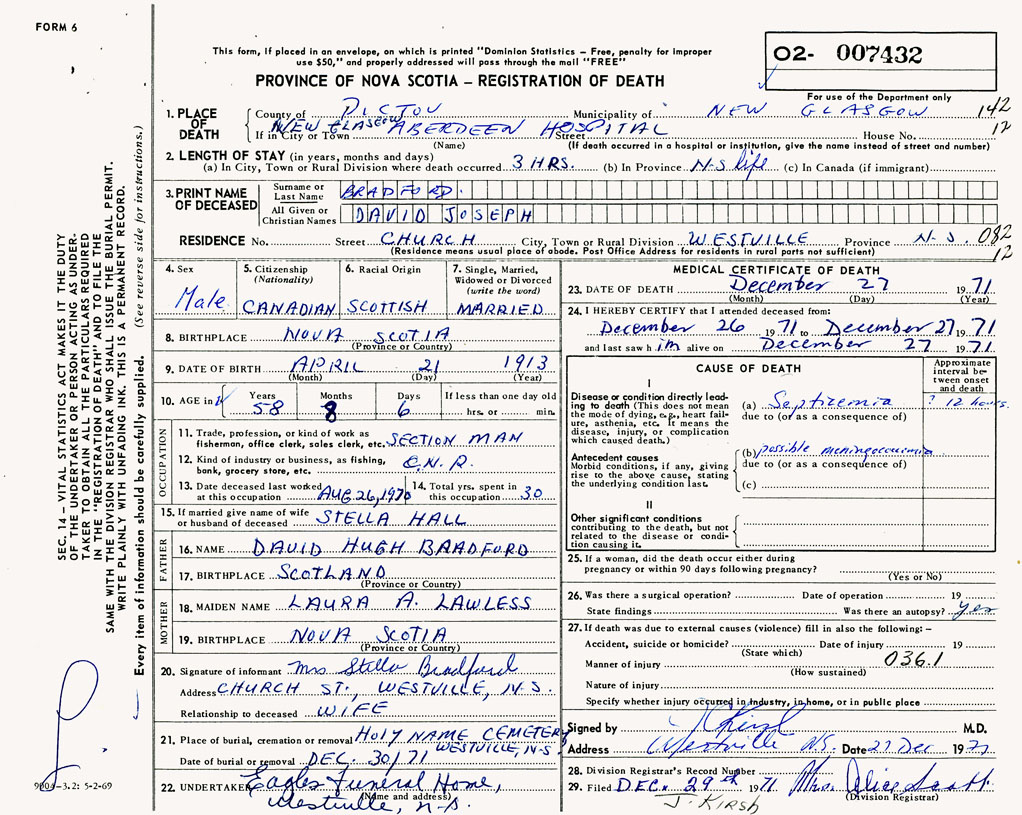 FORM 6
This form, if placed in an envelope, on which is printed "Dominion Statistics – Free, penalty for improper
use $50," and properly addressed will pass through the mail "FREE"
PROVINCE OF NOVA SCOTIA – REGISTRATION OF DEATH
O2- 007432
For use of the Department only
1. PLACE OF DEATH County of PICTOU Municipality of NEW GLASGOW 142
If in City or Town NEW GLASGOW ABERDEEN HOSPITAL Street House No. 12
(Name) (If death occurred in a hospital or institution, give the name instead of street and number)
2. LENGTH OF STAY (in years, months and days)
(a) In City, Town or Rural Division where death occurred 3 HRS. (b) In Province N-S life (c) In Canada (if immigrant)
3. PRINT NAME OF DECEASED Surname or Last Name BRADFORD.
All Given or Christian Names DAVID JOSEPH
RESIDENCE No. Street CHURCH City, Town or Rural Division WESTVILLE Province N-S. 082
(Residence means usual place of abode. Post Office Address for residents in rural parts not sufficient) 12
4. Sex Male
5. Citizenship (Nationality) CANADIAN
6. Racial Origin SCOTTISH
7. Single, Married, Widowed or Divorced (write the word) MARRIED
8. BIRTHPLACE NOVA SCOTIA
(Province or Country)
9. DATE OF BIRTH APRIL 21 1913
(Month) (Day) (Year)
10. AGE in Years 58 Months 8 Days 6 If less than one day old hrs. or min.
OCCUPATION
11. Trade, profession, or kind of work as
fisherman, office clerk, sales clerk, etc. SECTION MAN
12. Kind of industry or business, as fishing,
bank, grocery store, etc. C.N.R.
13. Date deceased last worked at this occupation AUG 26, 1970
14. Total yrs. spent in this occupation 30
15. If married give name of wife
or husband of deceased STELLA HALL
FATHER
16. NAME DAVID HUGH BRADFORD
17. BIRTHPLACE SCOTLAND
(Province or Country)
MOTHER
18. MAIDEN NAME LAURA A. LAWLESS
19. BIRTHPLACE NOVA SCOTIA
(Province or Country)
20. Signature of informant Mrs Stella Bradford
Address CHURCH ST., WESTVILLE, N-S.
Relationship to deceased WIFE
21. Place of burial, cremation or removal HOLY NAME CEMETERY
WESTVILLE, N-S
Date of burial or removal DEC. 30/71
22. UNDERTAKER Eagles Funeral Home,
(Name and address)
Westville, N-S.
MEDICAL CERTIFICATE OF DEATH
23. DATE OF DEATH December 27 1971
(Month) (Day) (Year)
24. I HEREBY CERTIFY that I attended deceased from:
December 26 1971 to December 27 1971
and last saw him alive on December 27 1971.
CAUSE OF DEATH
Approximate interval between onset and death
I
Disease or condition directly leading
to death (This does not mean
the mode of dying, e.g., heart failure,
asthenia, etc. It means the
disease, injury, or complication
which caused death.)
(a) Septicemia ? 12 hours.
due to (or as a consequence of)
Antecedent causes
Morbid conditions, if any, giving
rise to the above cause, stating
the underlying condition last.
(b) possible meningococcemia
due to (or as a consequence of)
(c)
II
Other significant conditions
contributing to the death, but not
related to the disease or condition
causing it.
25. If a woman, did the death occur either during
pregnancy or within 90 days following pregnancy?
(Yes or No)
26. Was there a surgical operation? Date of operation 19
State findings Was there an autopsy? Yes
27. If death was due to external causes (violence) fill in also the following: –
Accident, suicide or homicide? Date of injury 19
(State which)
036.1
Manner of injury
(How sustained)
Nature of injury
Specify whether injury occurred in industry, in home, or in public place
Signed by J Kirsh M.D.
Address Westville N.S. Date 27 Dec 1971
28. Division Registrar's Record Number
29. Filed DEC. 29th 1971 Mrs. Alice Scott
(Division Registrar)
J. KIRSH
SEC. 14 – VITAL STATISTICS ACT MAKES IT THE DUTY
OF THE UNDERTAKER OR PERSON ACTING AS UNDERTAKER
TO OBTAIN ALL THE PARTICULARS REQUIRED
IN THE "REGISTRATION OF DEATH" AND TO FILE THE
SAME WITH THE DIVISION REGISTRAR WHO SHALL ISSUE THE BURIAL PERMIT.
WRITE PLAINLY WITH UNFADING INK. THIS IS A PERMANENT RECORD.
Every item of information should be carefully supplied. (See reverse side for instructions.)
9004-3.2: 5-2-69